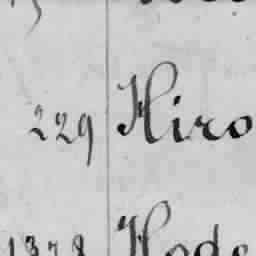 229 Hiro
1378 Hode